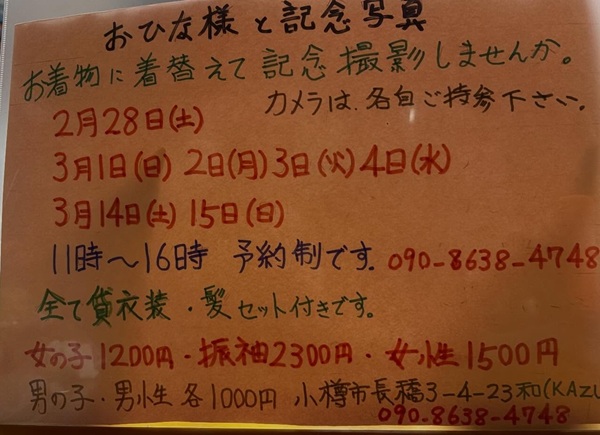 おひな様と記念写真
お着物に着替えて記念撮影しませんか。
カメラは、各自ご持参下さい。
2月28日(土)
3月1日(日) 2日(月)3日(火)4日(水)
3月14日(土) 15日(日)
11時～16時 予約制です。090-8638-4748
全て貸衣装・髪セット付きです。
女の子1200円・振袖2300円・女性1500円
男の子・男性各1000円 小樽市長橋3-4-23和(KAZU
090-8638-4748